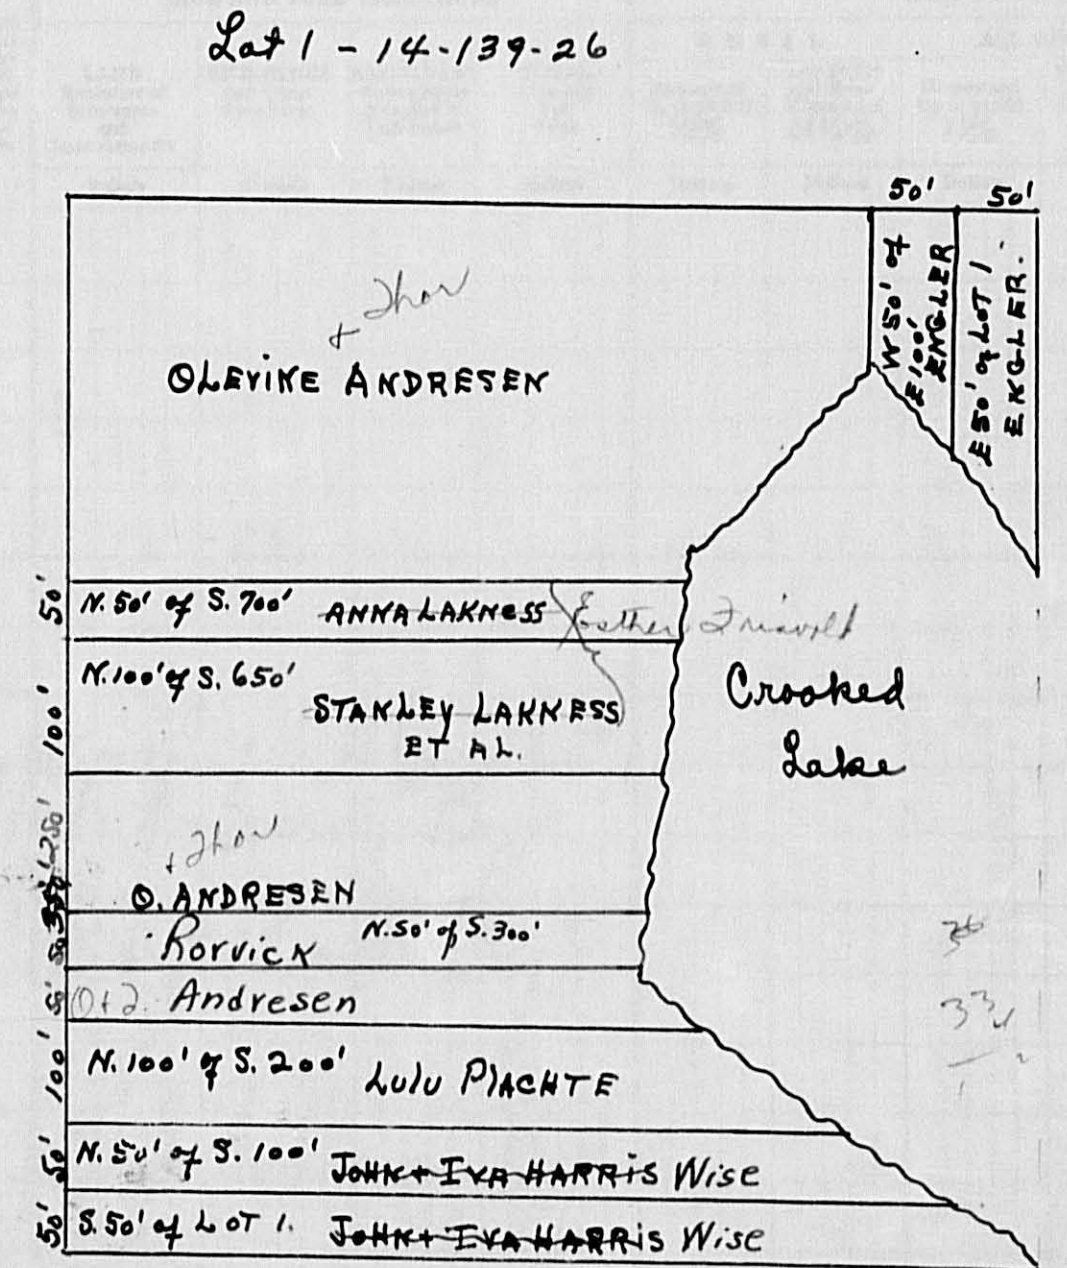 Lot 1 - 14-139-26
50' 50'
W 50' of
E 100'
ENGLER
E 50' of LOT 1
ENGLER.
+ Thor
OLEVINE ANDRESEN
50' N. 50' of S. 700' ANNA LAKNESS Esther
100' N. 100' of S. 650'
STANLEY LAKNESS
ET AL.
Crooked
Lake
+ Thor
O. ANDRESEN
Rorvick N. 50' of S. 300'
Andresen
100' N. 100' of S. 200' LULU PLACHTE
50' N. 50' of S. 100' JOHN + IVA HARRIS Wise
50' S. 50' of LOT 1. JOHN + IVA HARRIS Wise